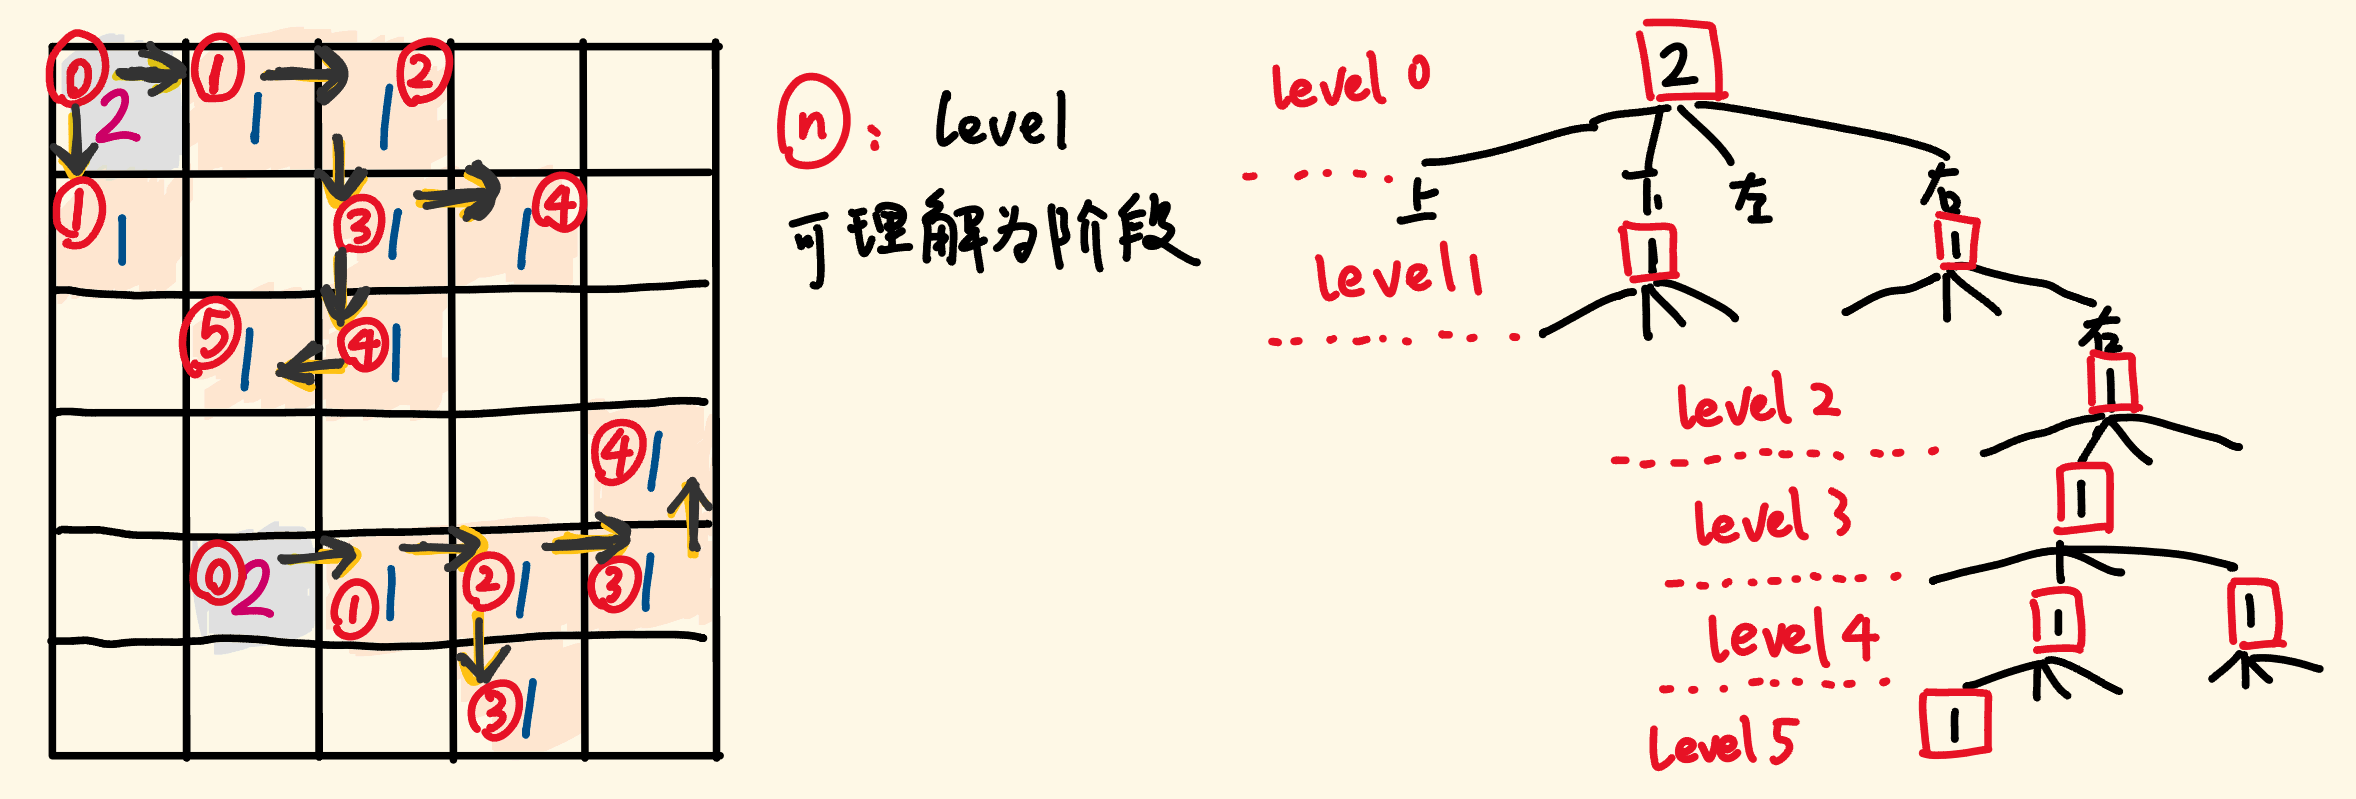 0 1 2
2 1 1
1 1 3 1 1 4
5 1 4 1
4 1
0 2 1 1 2 1 3 1
3 1
n: level
可理解为阶段
level 0 2
上 下 左 右
level 1 1 1
右
level 2 1
level 3 1
level 4 1 1
level 5 1